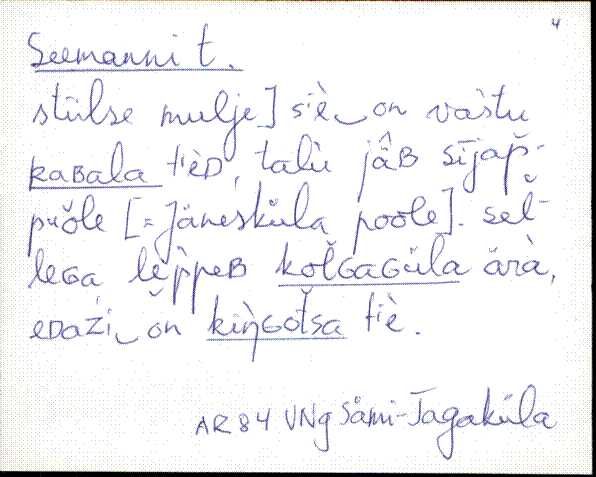 4
Seemanni t.
stülse mulje] siè‿on vaštu
kaʙala tièᴅ, talù jâʙ sījap̆-
puŏle [= Jäneskŭla poole]. sel̆-
leɢa lĕp̀peʙ kol̆ɢaɢüla ärà,
eᴅaźi‿on kiǹɢot̆sa tiè.
AR 84 VNg Sämi-Jagaküla